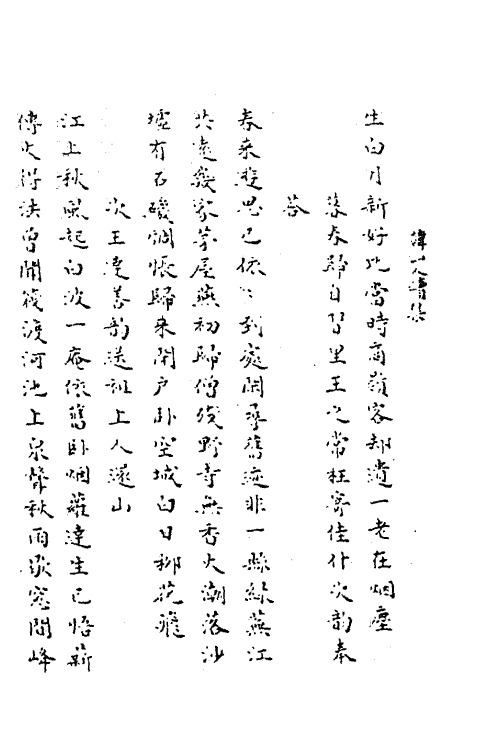 生白月新好比當時商嶺客却遺一老在烟塵
暮春歸自習里王之常枉寄佳什次韵奉
答
春來遊思已依依到處閒尋舊迹非一縣綠蕪江
共遠幾家茅屋燕初歸僧殘野寺無香火潮落沙
墟有石磯惆悵歸來閉户卧空城白日柳花飛
次王達善韵送祖上人還山
江上秋風起白波一庵依舊卧烟蘿達生已悟薪
傳火得法曾聞筏渡河池上泉聲秋雨歇窓間峰